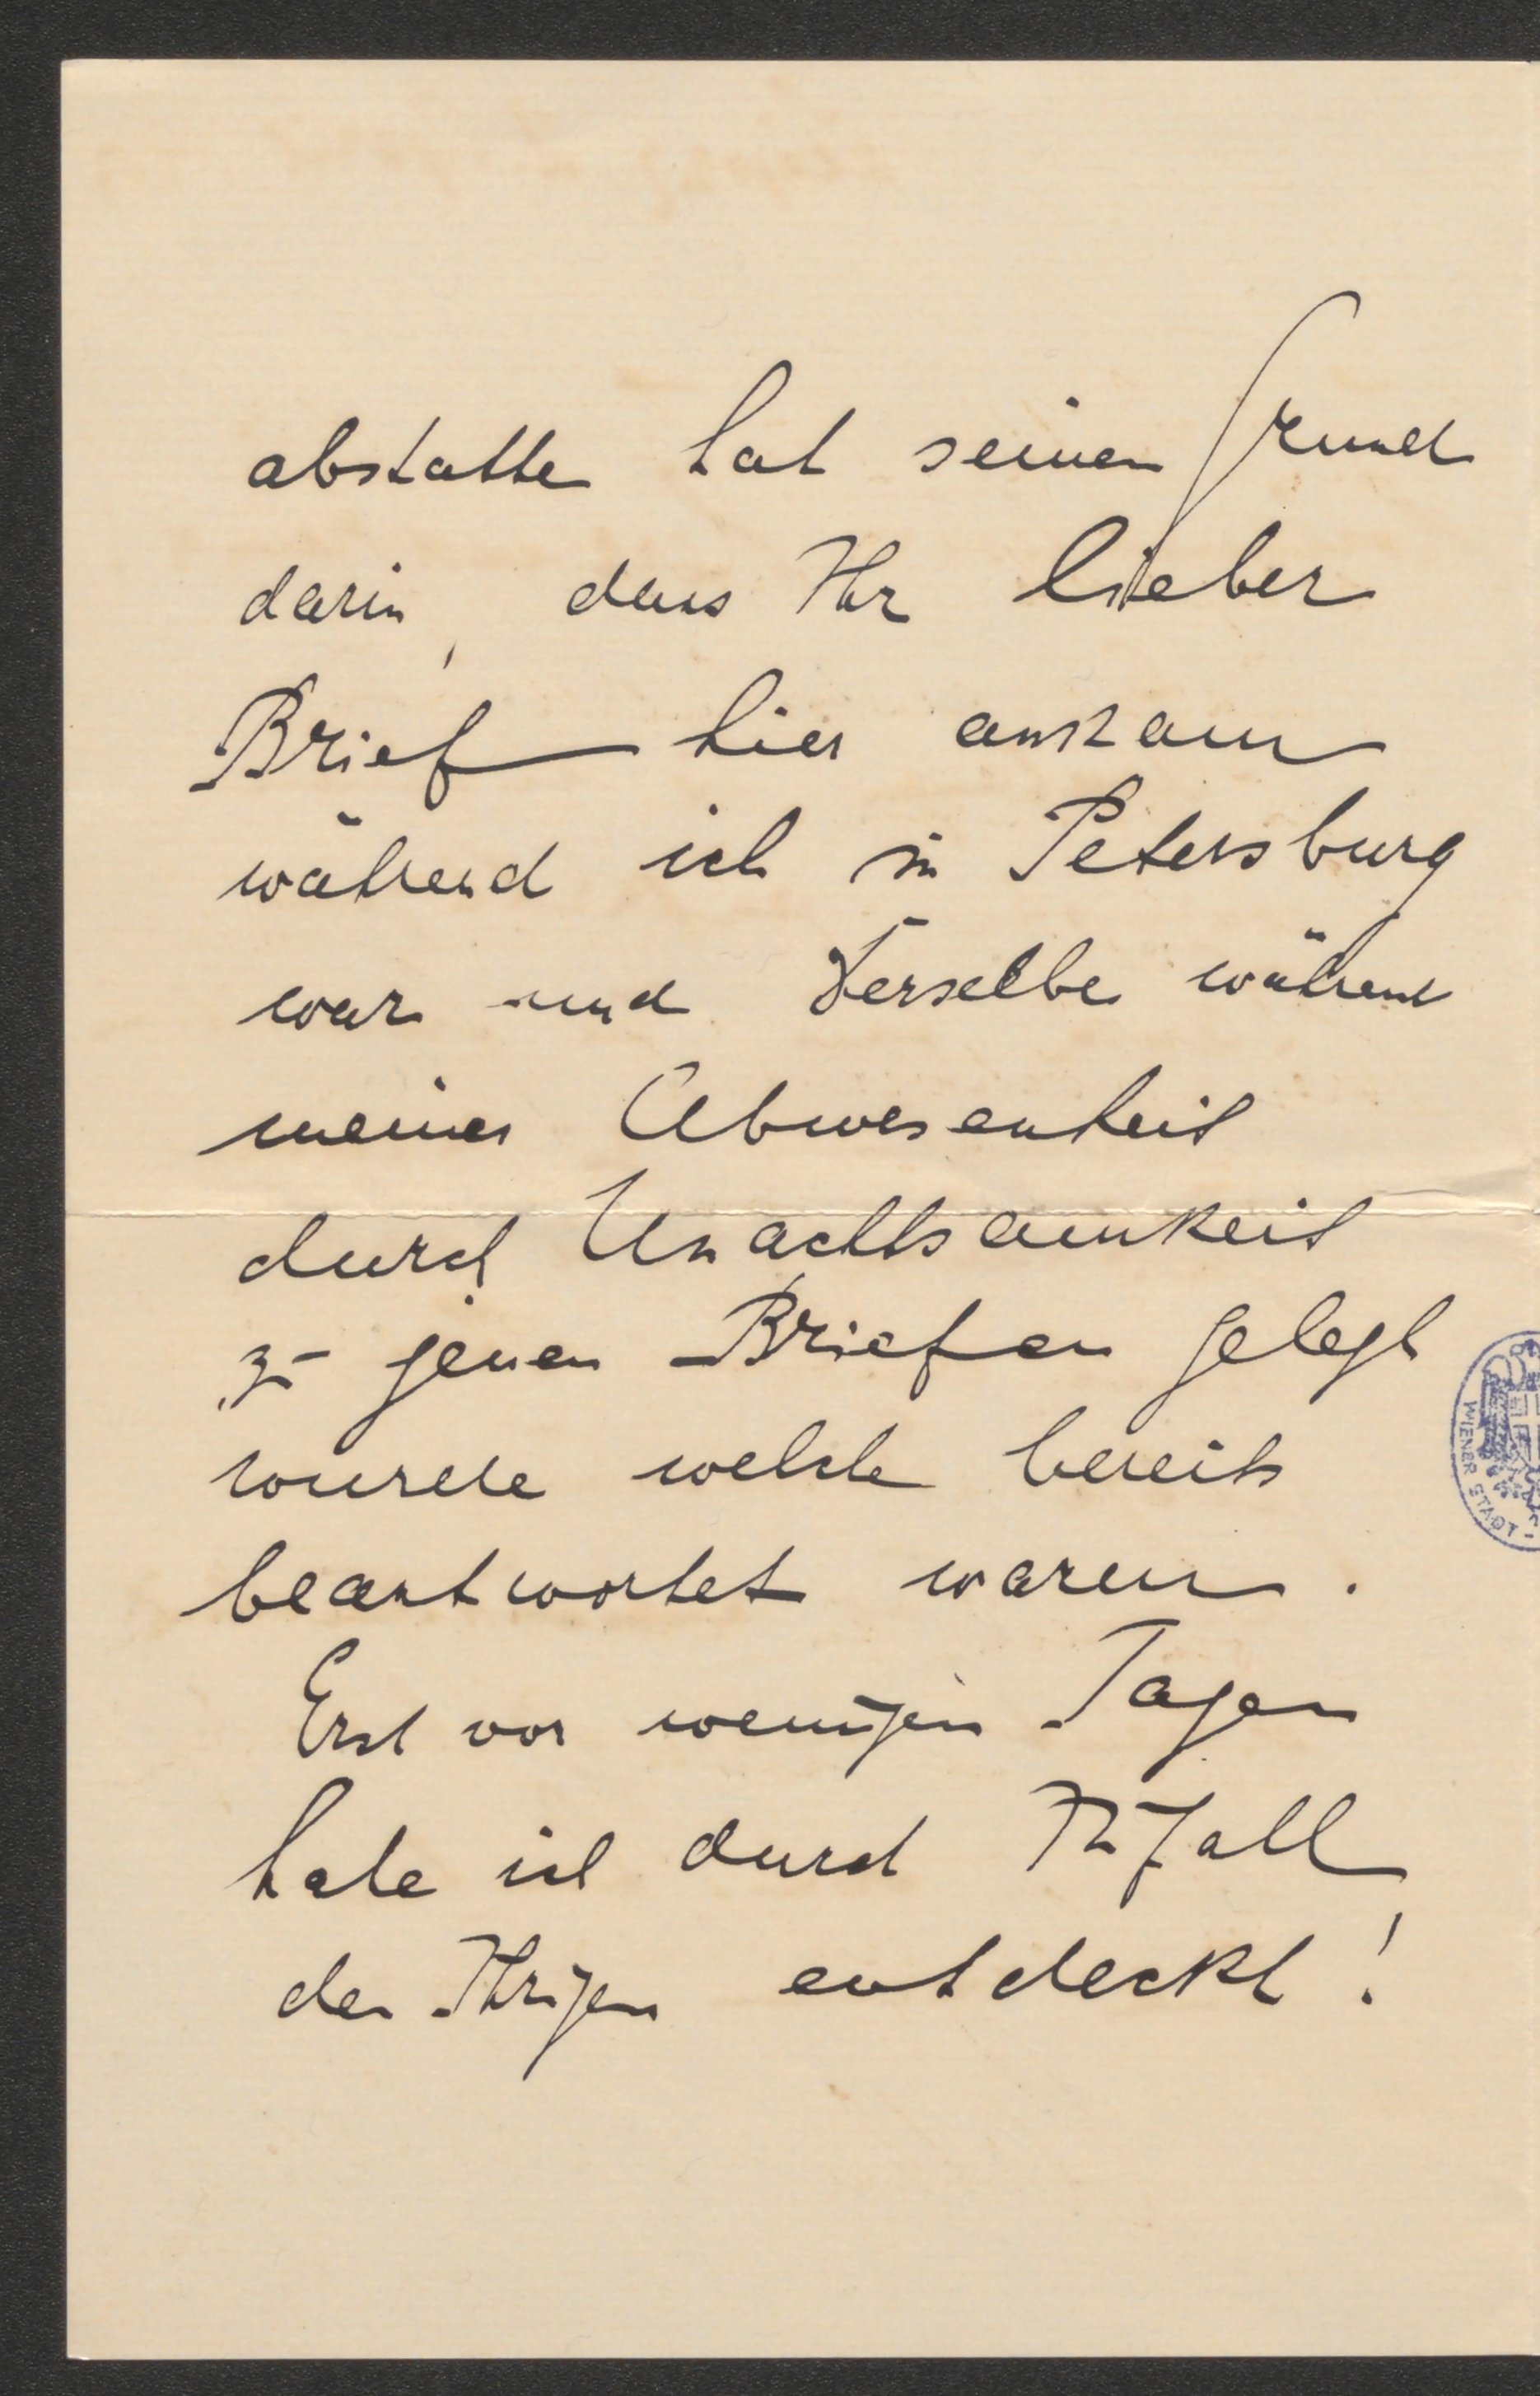 abstatte hat seinen Grund
darin, dass Ihr lieber
Brief hier ankam
während ich in Petersburg
war und derselbe während
meiner Abwesenheit
durch Unachtsamkeit
zu jenen Briefen gelegt
wurde welche bereits
beantwortet waren.
Erst vor wenigen Tagen
habe ich durch Zufall
den Ihrigen entdeckt!
WIENER STADT-